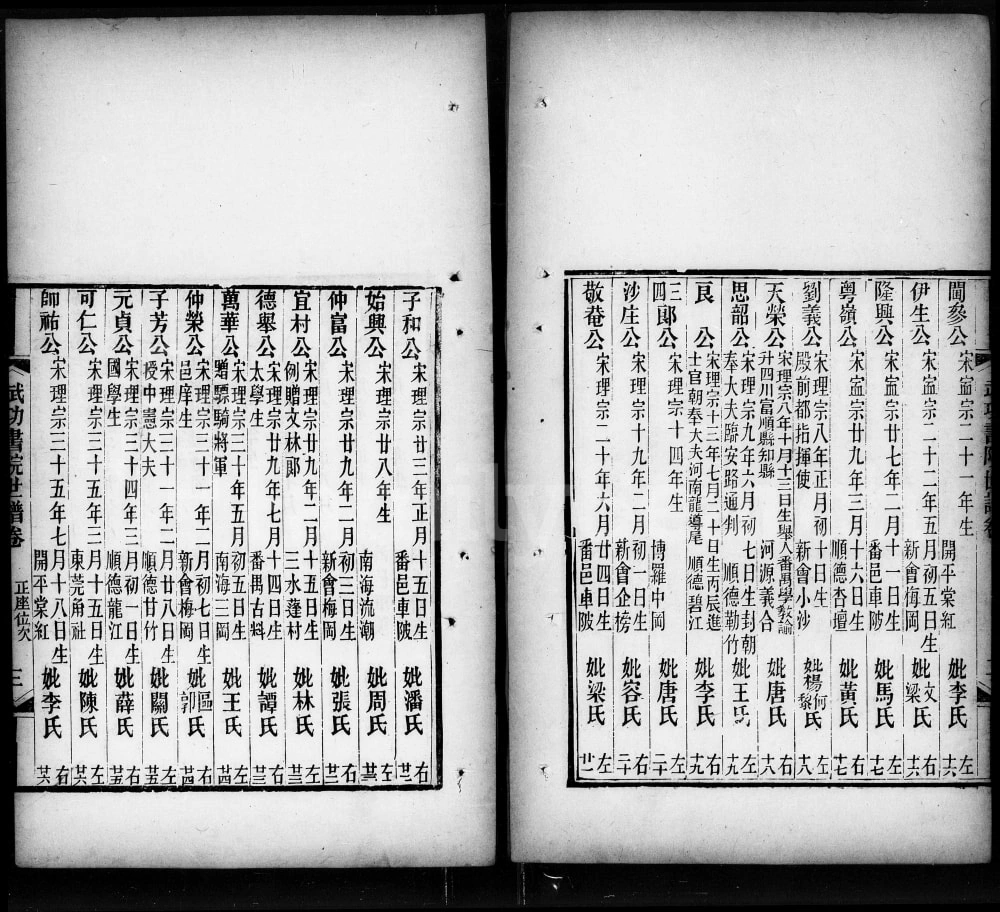 閩參公 宋寍宗二十一年生 開平棠紅 妣李氏 左十六
伊生公 宋寍宗二十二年五月初五日生 新會侮岡 妣文梁氏 右十六
隆興公 宋寍宗廿七年二月十一日生 番邑車陂 妣馬氏 左十七
粵嶺公 宋寍宗廿九年三月十六日生 順德杏壇 妣黃氏 右十七
劉義公 宋理宗八年正月初十日生 殿前都指揮使 新會小沙 妣楊何黎氏 左十八
天榮公 宋理宗八年十月十三日生舉人番禺學教諭 升四川富順縣知縣 河源義合 妣唐氏 右十八
思韶公 宋理宗九年六月初七日生封朝 奉大夫臨安路通判 順德勒竹 妣王氏 左十九
良公 宋理宗十三年七月二十日生丙辰進 士官朝奉大夫河南龍導尾 順德碧江 妣李氏 右十九
三四郞公 宋理宗十四年生 博羅中岡 妣唐氏 左二十
沙庄公 宋理宗十九年二月初一日生 新會企榜 妣容氏 右二十
敬菴公 宋理宗二十年六月廿四日生 番邑車陂 妣梁氏 左廿一
武功書院世譜卷 二
子和公 宋理宗廿三年正月十五日生 番邑車陂 妣潘氏 右廿二
始興公 宋理宗廿八年生 南海流潮 妣周氏 左廿三
仲富公 宋理宗廿九年二月初三日生 新會梅岡 妣張氏 右廿三
宜村公 宋理宗廿九年二月十五日生 例贈文林郞 三水蓬村 妣林氏 左廿三
德舉公 宋理宗廿九年七月十四日生 太學生 番禺古料 妣譚氏 右廿三
萬華公 宋理宗三十年五月初五日生 贈驃騎將軍 南海三岡 妣王氏 左廿四
仲榮公 宋理宗三十一年二月初七日生 邑庠生 新會梅岡 妣區氏 右廿四
子芳公 宋理宗三十一年二月廿八日生 授中憲大夫 順德廿竹 妣關氏 左廿五
元貞公 宋理宗三十四年三月初一日生 國學生 順德龍江 妣薛氏 右廿五
可仁公 宋理宗三十五年三月十五日生 東莞甪社 妣陳氏 左廿六
師祐公 宋理宗三十五年七月十八日生 開平棠紅 妣李氏 右廿六
武功書院世譜卷 正座位次 三